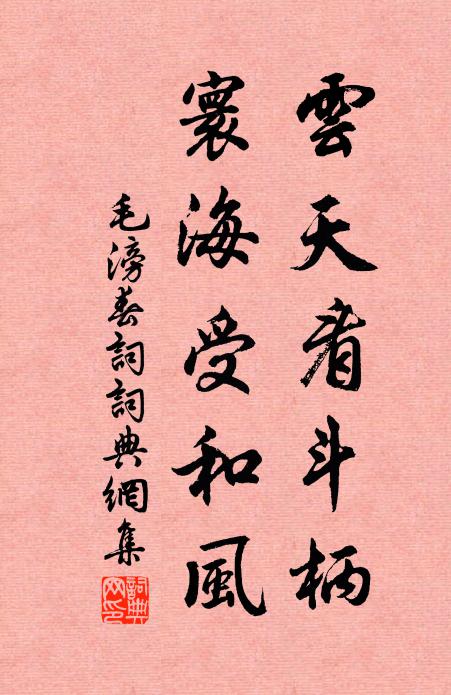 雲天看斗柄
寰海受和風
毛滂春詞詞典網集
詞典
网印